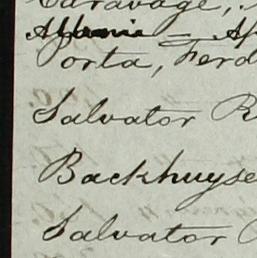 Caravage,
Albanie = Af
Porta, Ferd
Salvator R
Backhuyse
Salvator